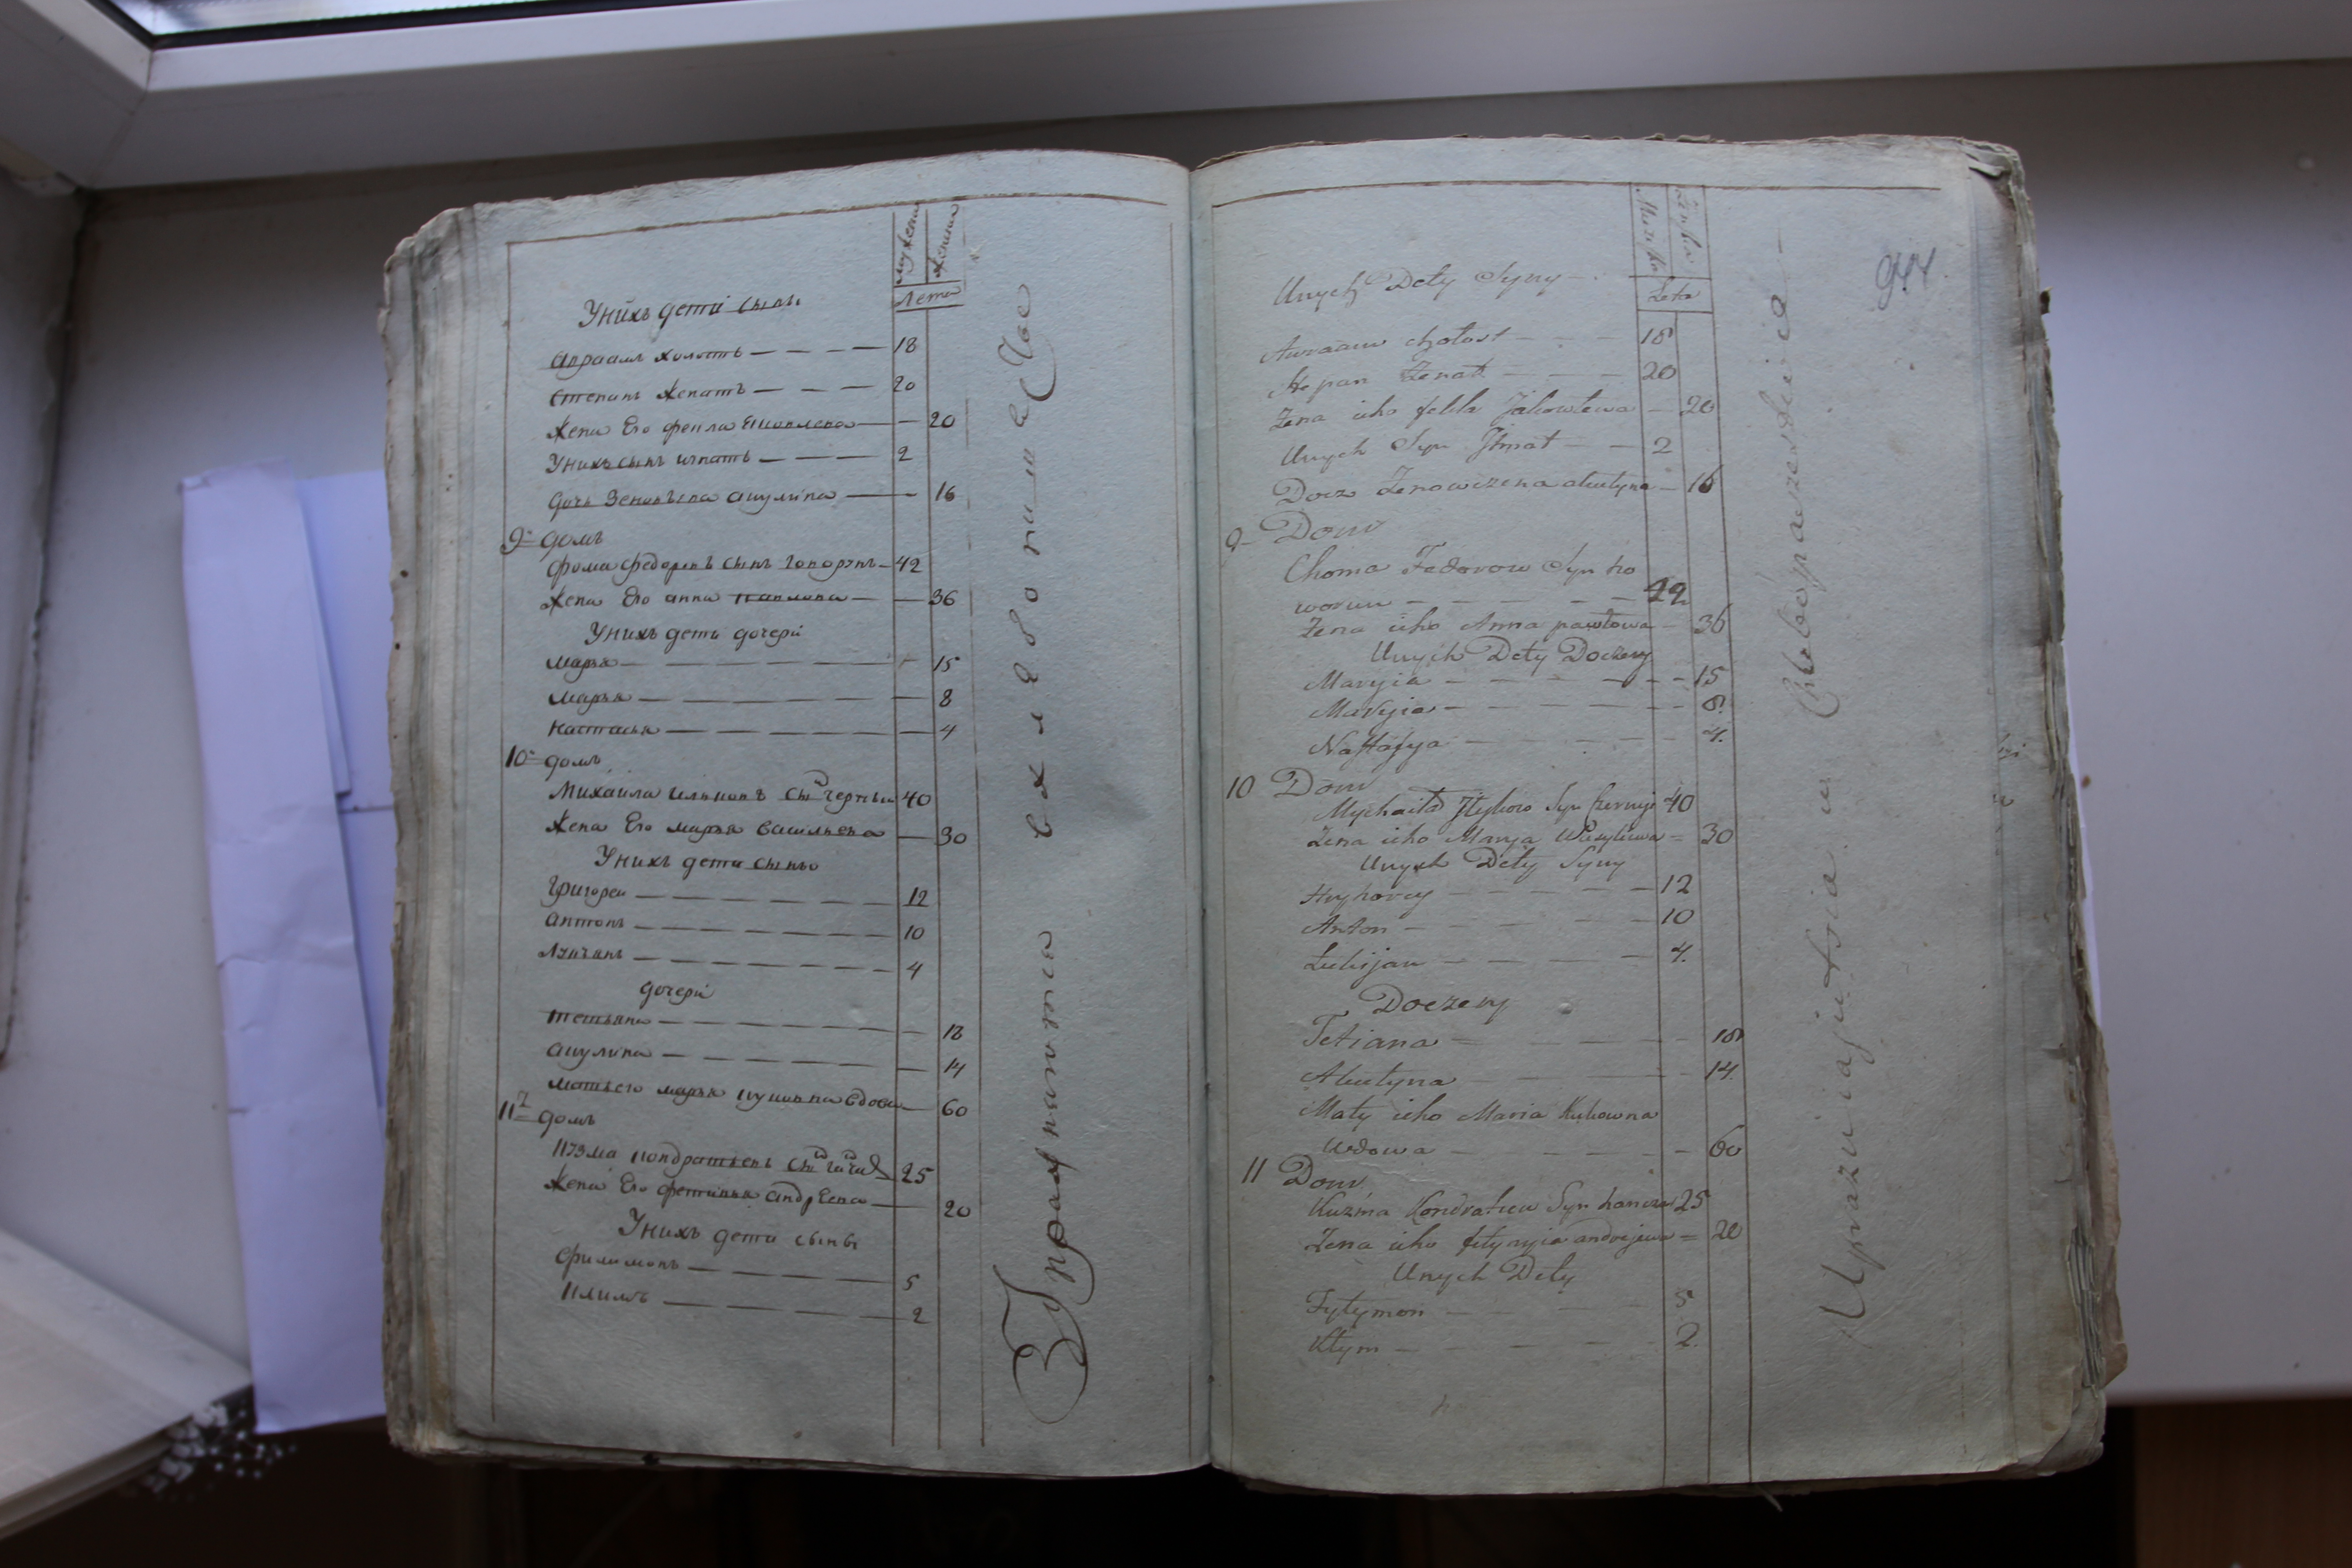 мужеска
женска
лета
Унихъ дети сыны
авраамъ холостъ — — — — 18
степанъ женатъ — — — 20
жена Его фекла Яковлева — — 20
Унихъ сынъ игнатъ — — — 2
дочь Зеновьева акулина — — 16
9 домъ
фома федоровъ сынъ говорунъ — 42
жена Его анна павлова — — 36
Унихъ дети дочери
марья — — — — — 15
марья — — — — — 8
настасья — — — — — 4
10 домъ
Михаила ильковъ сынъ черныи 40
жена Его марья васильева — 30
Унихъ дети сыны
григореи — — — — — 12
антонъ — — — — — 10
лукьянъ — — — — — 4
дочери
тетьяна — — — — — 18
акулина — — — — — 14
мать его марья куковна вдова — 60
11 домъ
кузма кондратьевъ сынъ 25
жена Его фетинья андреева — 20
Унихъ дети сыны
филимонъ — — — — 5
климъ — — — — 2
Упражняются в хлебопашестве
Muzeska
Zenska
Leta
944
Unych Dety Syny
Awraam chołost — — — 18
Stepan Zenat — — — 20
Zena ieho fekla Jakowlewa — 20
Unych Syn Ihnat — — 2
Docz Zenowiewna akulyna — 16
9 Dom
Choma Fedorow Syn ho
worun — — — — — 42
Zena ieho Anna pawłowa — 36
Unych Dety Doczery
Maryia — — — — — 15
Maryia — — — — — 8
Nastasya — — — — 4
10 Dom
Mychaiło Ilykow Syn Czernyi 40
Zena ieho Marya Wasylewa = 30
Unych Dety Syny
Hryhorey — — — — — 12
Anton — — — — — 10
Lukijan — — — — 4
Doczery
Tetiana — — — — 18
Akulyna — — — — 14
Maty ieho Maria Kukowna
Wdowa — — — — — 60
11 Dom
Kuzma Kondratiew Syn 25
Zena ieho fetynyia andrejewa = 20
Unych Dety
Fyłymon — — — 5
Kłym — — — — 2
Uprazniajutsia w Chlebopaszestwie —